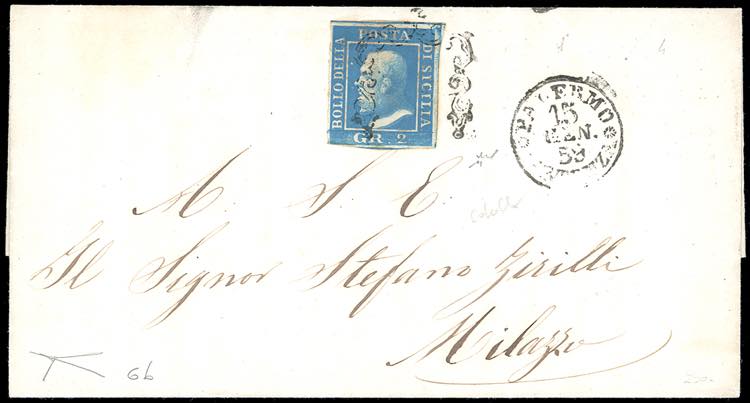 BOLLO DELLA
POSTA
DI SICILIA
GR. 2
PALERMO
15
GEN.
59
A. S. E.
Il Signor Stefano Zirilli
Milazzo
6b